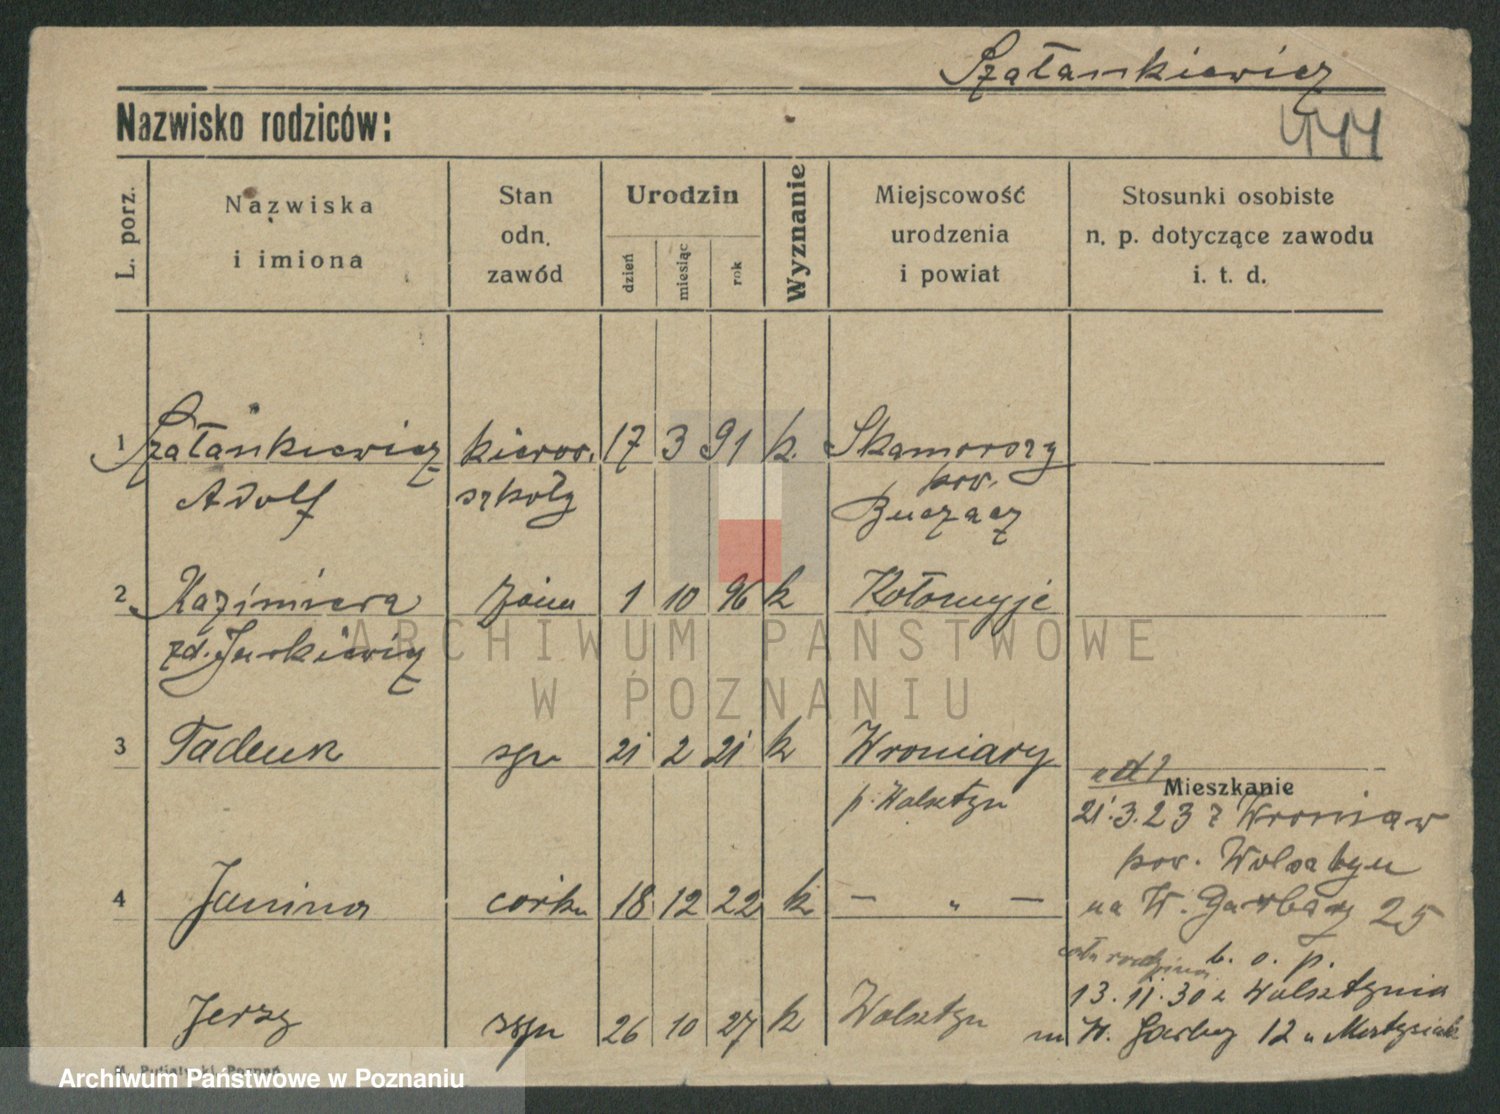 Szałankiewicz
Nazwisko rodziców:
444
L. porz.
Nazwiska
i imiona
Stan
odn.
zawód
Urodzin
dzień
miesiąc
rok
Wyznanie
Miejscowość
urodzenia
i powiat
Stosunki osobiste
n. p. dotyczące zawodu
i. t. d.
1 Szałankiewicz kierow. 17 3 91 k. Skomorozy
Adolf szkoły pow.
Buczacz
2 Kazimiera żona 1 10 96 k Kołomyje
zd. Jurkiewicz
3 Tadeusz syn 21 2 21 k Wroniawy
p. Wolsztyn
Mieszkanie
21.3.23 z Wroniaw
pow. Wolsztyn
4 Janina córka 18 12 22 k — „ —
na W. Garbary 25
cała rodzina b. o. p.
Jerzy syn 26 10 27 k Wolsztyn
13.11.30 z Wolsztyna
W. Garbary 12 u
ARCHIWUM PAŃSTWOWE
W POZNANIU
Poznań
Archiwum Państwowe w Poznaniu